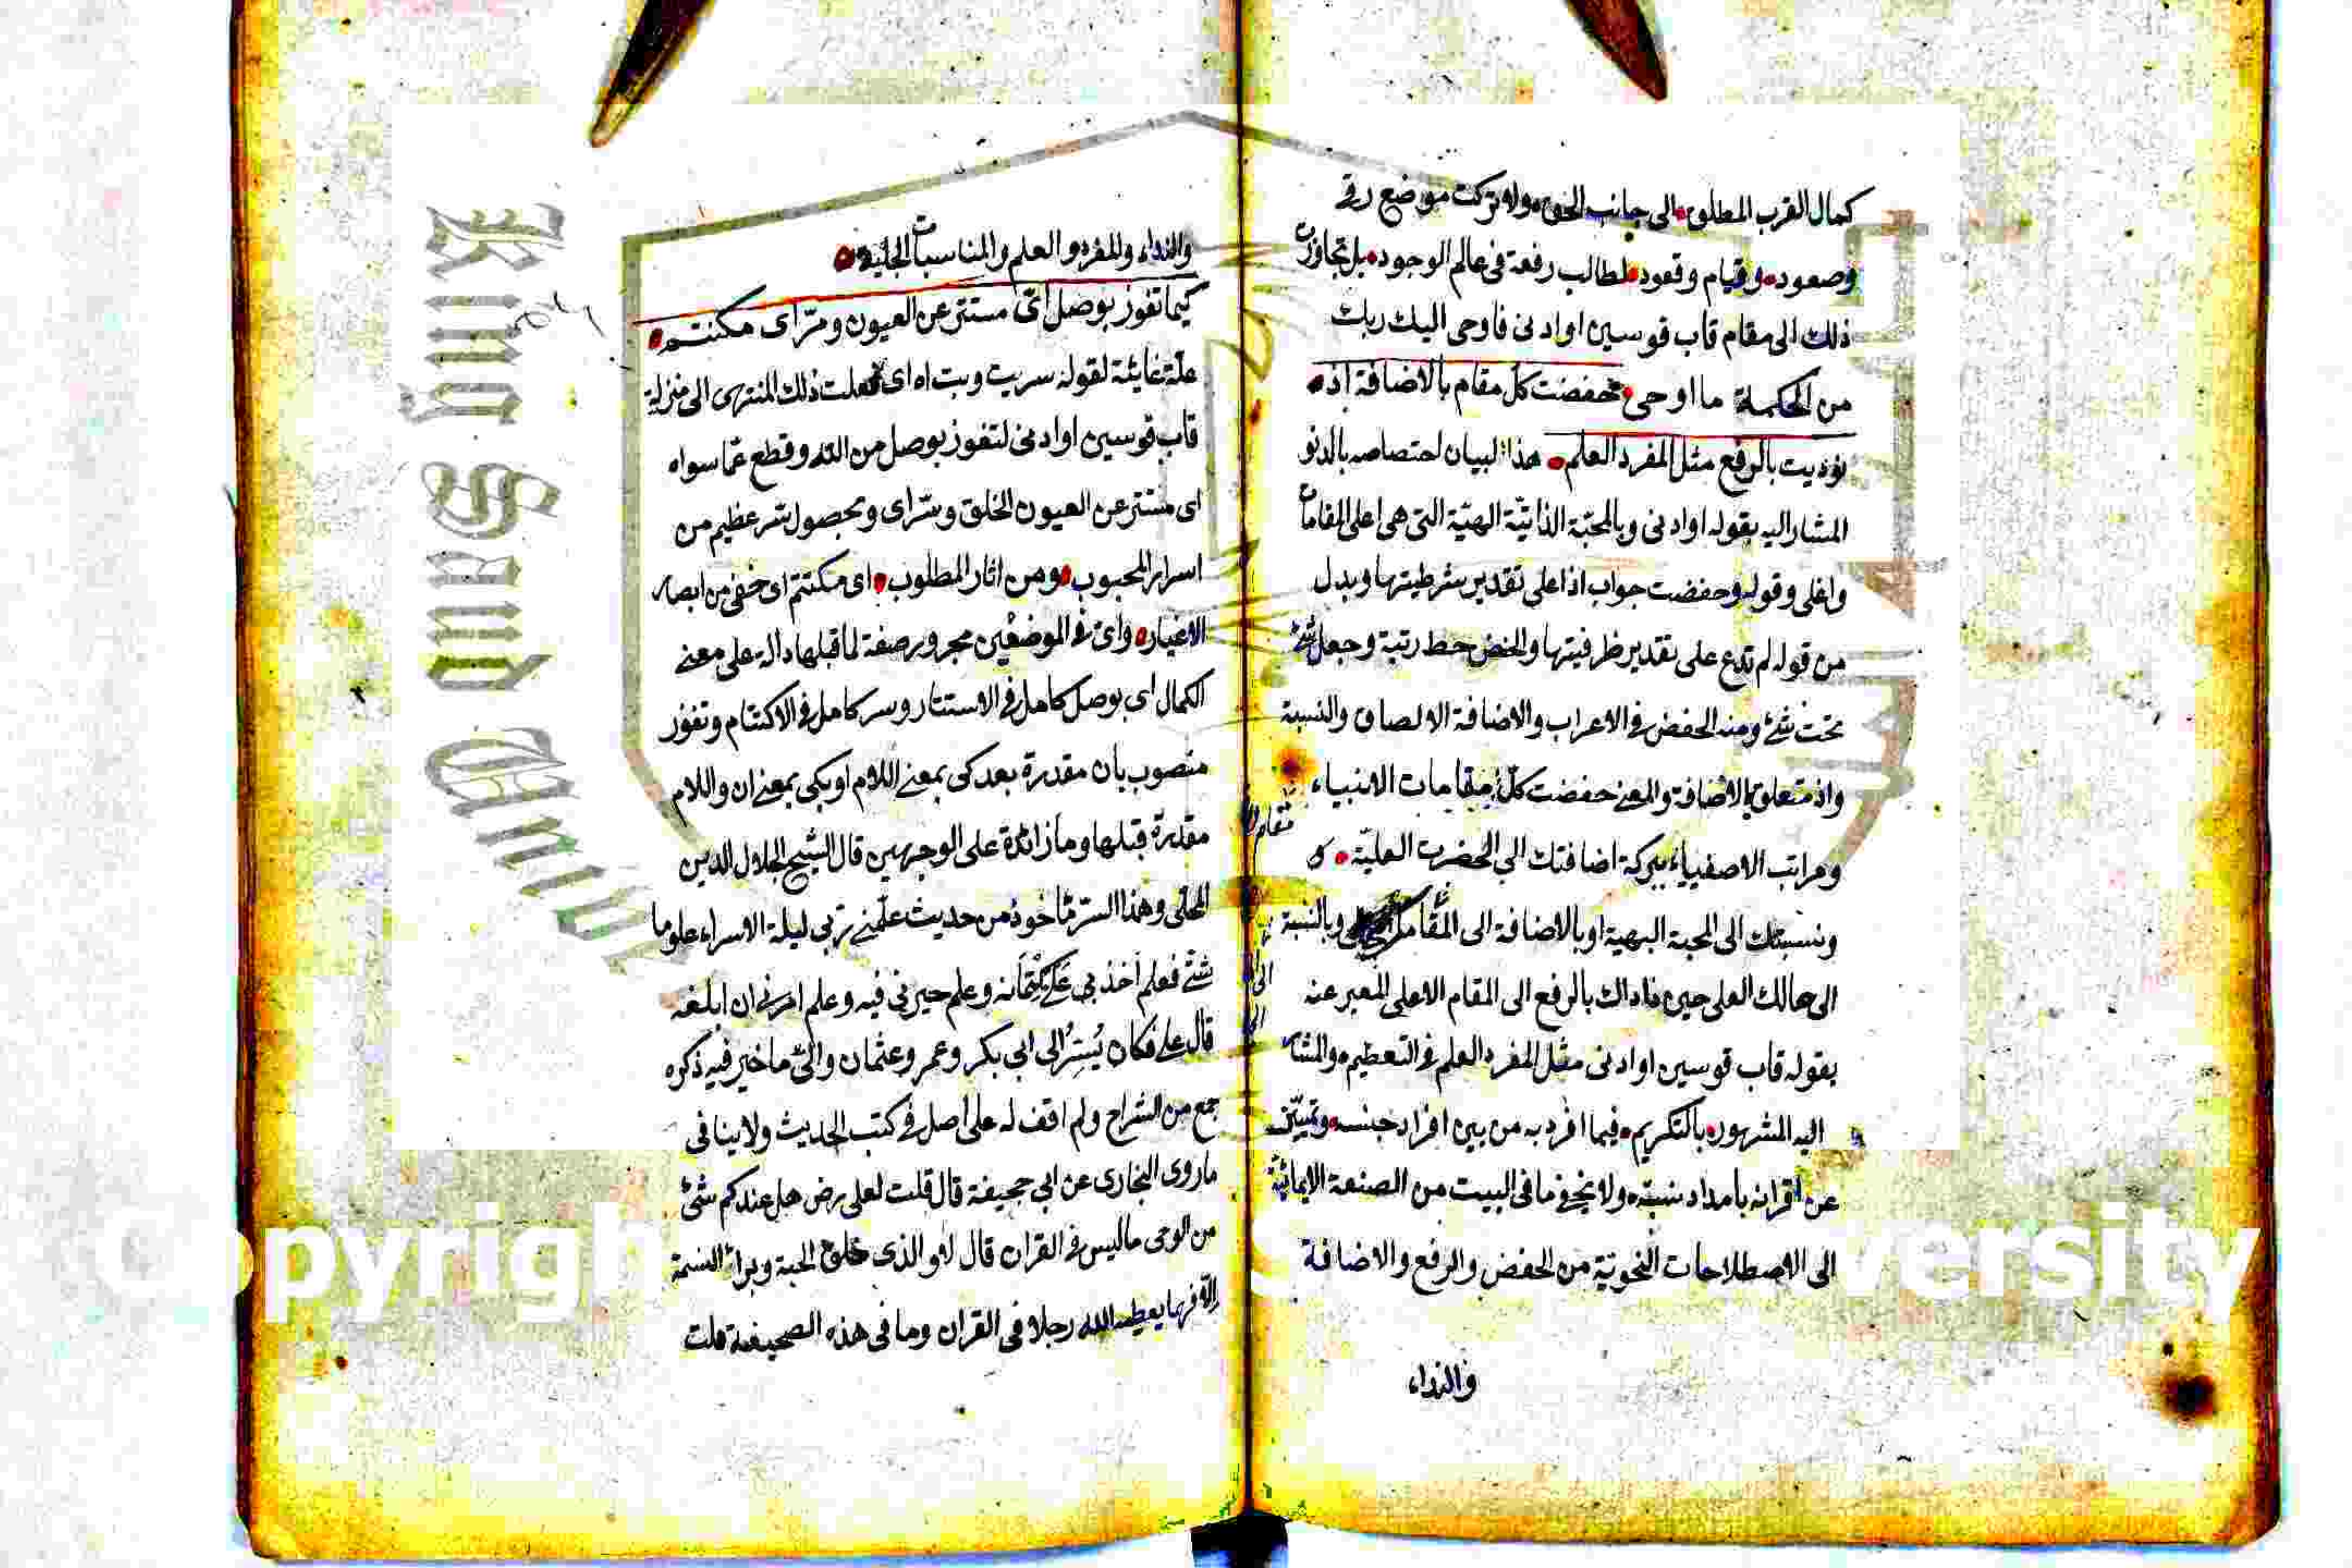 كمال القرب المطلق الى جانب الحق ولا تركت موضع رقي
وصعود وقيام وقعود لطالب رفعة في عالم الوجود بل تجاوزت
ذلك الى مقام قاب قوسين او ادنى فاوحى اليك ربك
من الحكمة ما اوحى خفضت كل مقام بالاضافة اذ
نوديت بالرفع مثل المفرد العلم هذا لبيان اختصاصه بالدنو
المشار اليه بقوله او ادنى وبالمحبة الذاتية الهيّة التي هي اعلى المقامات
واغلى وقوله وخفضت جواب اذا على تقدير شرطيتها وبدل
من قوله لم تدع على تقدير ظرفيتها والخفض حط رتبة وجعل شئ
تحت شئ ومنه الخفض في الاعراب والاضافة الالصاق والنسبة
واذ متعلق بالاضافة والمعنى خفضت كل مقامات الانبياء
ومراتب الاصفياء ببركة اضافتك الى الحضرت العليّة
ونسبتك الى المحبة البهية او بالاضافة الى وبالنسبة
الى حالك العلي حين ناداك بالرفع الى المقام الاعلى المعبر عنه
بقوله قاب قوسين او ادنى مثل المفرد العلم في التعظيم والمشار
اليه المشهور بالتكريم فيما افرد به من بين افراد جنسه وتميّز
عن اقرانه بامداد ولا يخفى ما في البيت من الصنعة الايمائية
الى الاصطلاحات النحوية من الخفض والرفع والاضافة
والنداء
والنداء وللمفرد والعلم والمناسبات الجلية
كيما تفوز بوصل اي مستتر عن العيون وسرّ اي مكتتم
علة غائية لقوله سريت وبت اه اي فعلت ذلك المنتهى الى منزلة
قاب قوسين او ادنى لتفوز بوصل من الله وقطع عما سواه
اي مستتر عن العيون الخلق وسرّ اي وبحصول سر عظيم من
اسرار المحبوب ومن اثار المطلوب اي مكتتم اي خفي من ابصار
الاغيار واي في الموضعين مجرور صفة لما قبلها دالة على معنى
الكمال اي بوصل كامل في الاستتار وسر كامل في الاكتتام وتفوز
منصوب بان مقدرة بعد كي بمعنى اللام او بكي بمعنى ان واللام
مقدرة قبلها وما زائدة على الوجهين قال الشيخ الجلال الدين
المحلي وهذا السرّ مأخوذ من حديث علّمني ربي ليلة الاسراء علوما
شتّى فعلم اخذ بي على كتمانه وعلم خيرني فيه وعلم امرني ان ابلغه
قال علي فكان يُسِرُّ الى ابي بكر وعمر وعثمان والي ما خير فيه ذكره
جمع من الشراح ولم اقف له على اصل في كتب الحديث ولا ينافي
ما روى البخاري عن ابي جحيفة قال قلت لعلي رض هل عندكم شئ
من الوحي ما ليس في القران قال لا والذي خلق الحبة وبرأ النسمة
الا فهما يعطيه الله رجلا في القران وما في هذه الصحيفة قلت